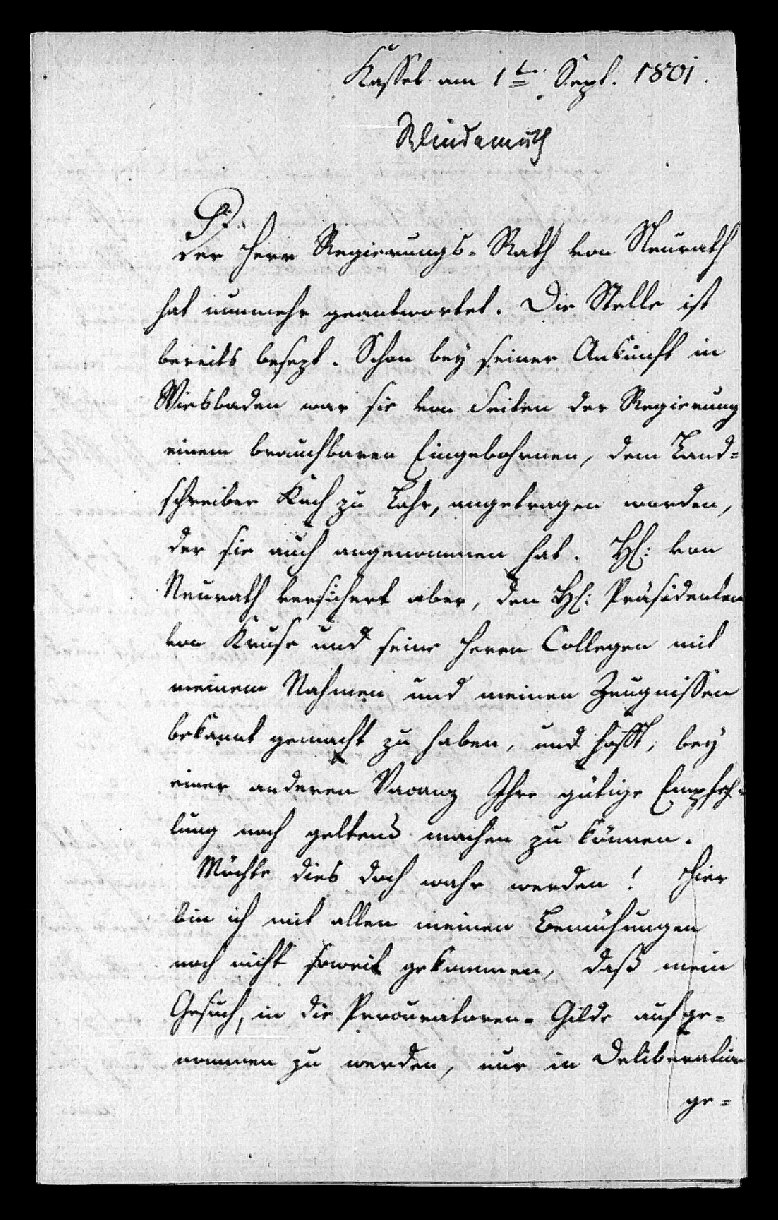 Kassel am 1t Sept. 1801.
Windemuth
P. P.
Der Herr Regierungs-Rath von Neurath
hat nunmehr geantwortet. Die Stelle ist
bereits besezt. Schon bey seiner Ankunft in
Wiesbaden war sie von Seiten der Regierung
einem brauchbaren Eingebohrnen, dem Land=
schreiber Kuch zu Lahr, angetragen worden,
der sie auch angenommen hat. H: von
Neurath versichert aber, den H: Präsidenten
von Kruse und seine Herrn Collegen mit
meinem Nahmen und meinen Zeugnissen
bekannt gemacht zu haben, und hofft, bey
einer anderen Vacanz Ihre gütige Empfeh=
lung noch geltend machen zu können.
Möchte dies doch wahr werden! Hier
bin ich mit allen meinen Bemühungen
noch nicht soweit gekommen, daß mein
Gesuch, in die Procuratoren-Gilde aufge=
nommen zu werden, nur in Deliberation
ge=